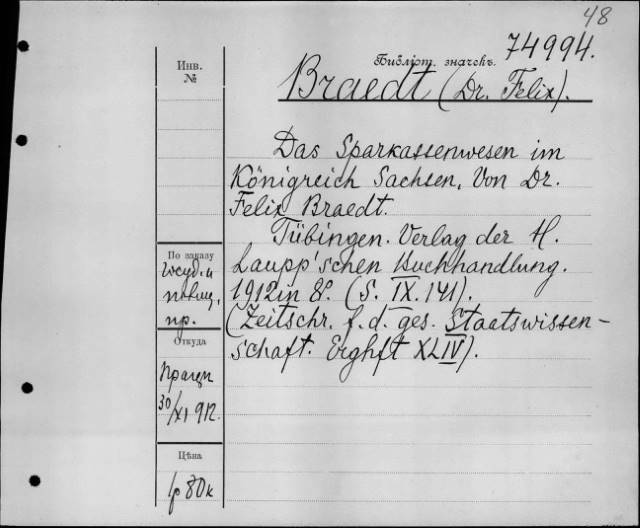 48
Инв.
№
Библіот. значекъ.
74994.
Braedt (Dr. Felix).
Das Sparkassenwesen im
Königreich Sachsen, Von Dr.
Felix Braedt.
Tübingen. Verlag der H.
Laupp'schen Buchhandlung.
1912 in 8°. (S. IX. 141).
(Zeitschr. f. d. ges. Staatswissen-
schaft. Erghft XLIV).
По заказу
пр.
Откуда
30/XI 912.
Цѣна
1р 80к